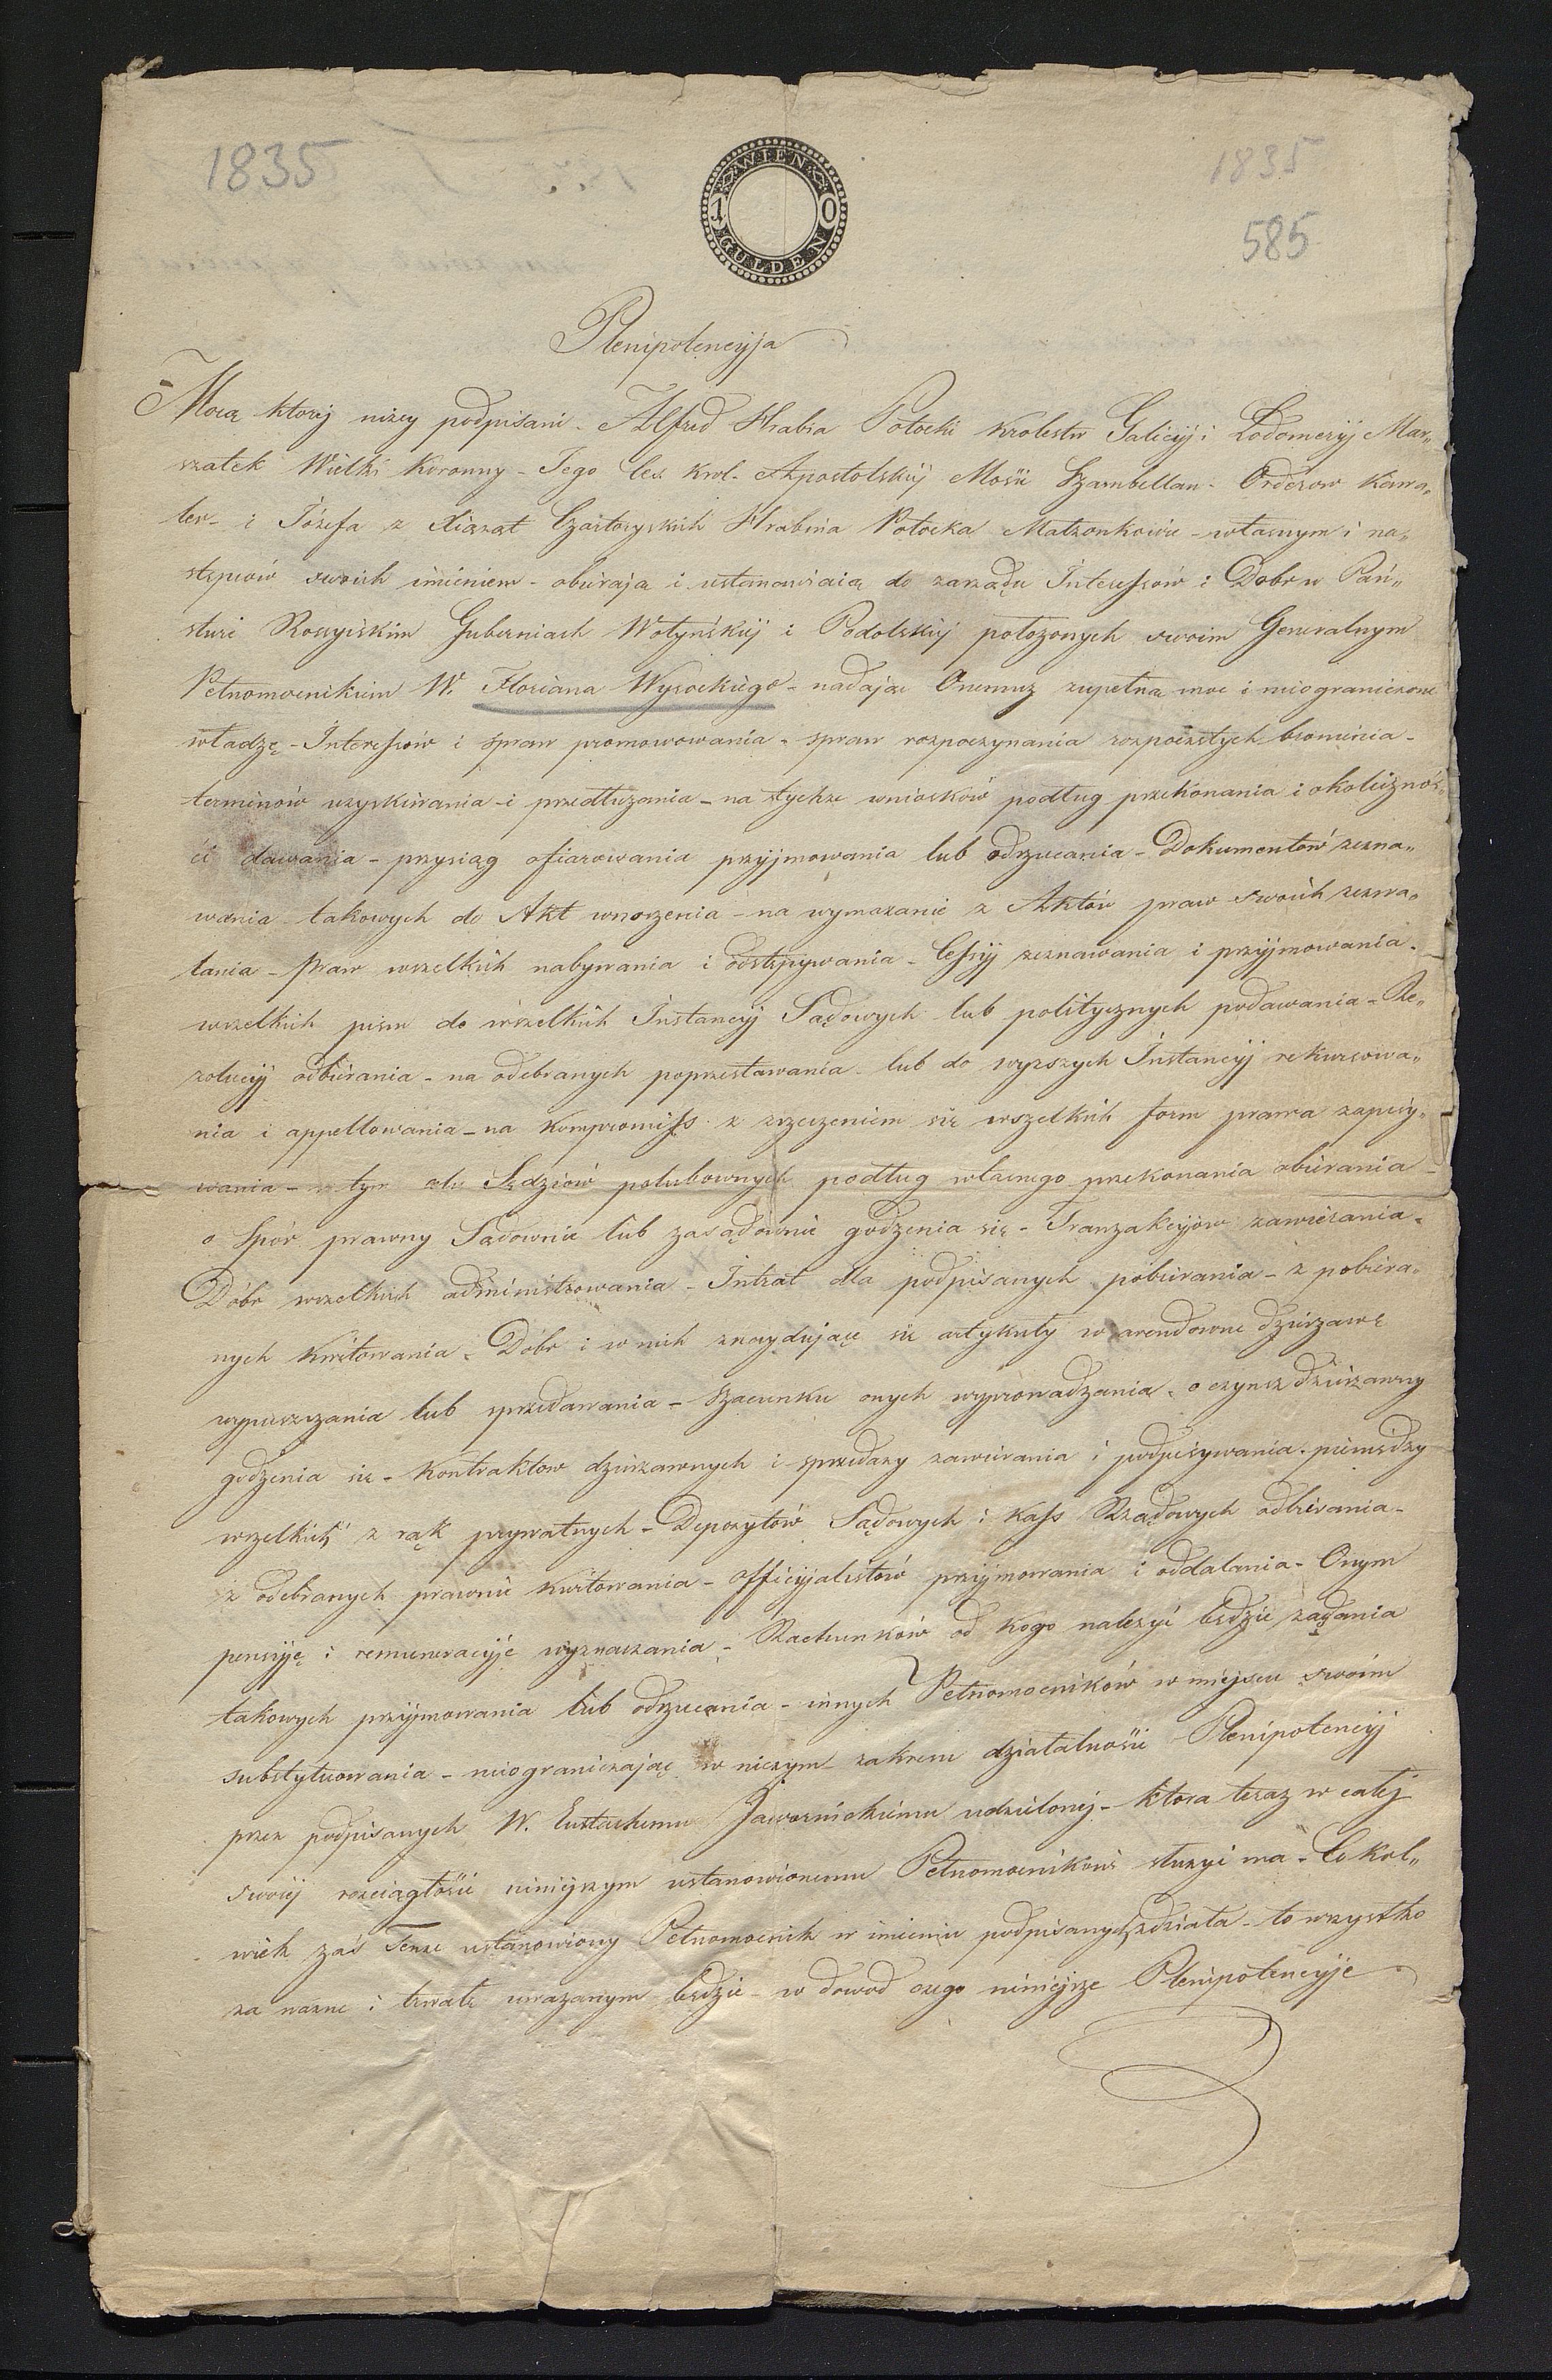 1835
WIEN
10
GULDEN
1835
585
Plenipotencyja
Mocą ktorej niżey podpisani - Alfred Hrabia Potocki Krolestw Galicyj i Lodomeryj Mar„
szałek Wielki Koronny - Jego Ces. Krol. Apostolskiej Mości Szambellan - Orderow Kawa„
ler - i Józefa z Xiażąt Czartoryskich Hrabina Potocka Małżonkowie - własnym i na„
stępców swoich imieniem - obieraja i ustanawiaią do zarządu Interessów i Dobr w Pań„
stwie Rossyiskim Guberniach Wołyńskiej i Podolskiej położonych swoim Generalnym
Pełnomocnikiem W. Floriana Wysockiego - nadając Onemuz zupełna moc i nieograniczone
władzę - Interessów i spraw promowowania - spraw rozpoczynania rozpoczętych bronienia -
terminów uzyskiwania - i przedłużania - na tychże wniosków podług przekonania i okoliznoś„
ci dawania - przysiąg ofiarowania przyjmowania lub odrzucania - Dokumentów zezna„
wania takowych do Akt wnoszenia - na wymazanie z Aktów praw swoich zezwa„
lania - Praw wszelkich nabywania i odstępywania - Cessyj zeznawania i przyjmowania -
wszelkich pism do wszelkich Instancyj Sądowych lub politycznych podawania - Re„
zolucyj odbierania - na odebranych poprzestawania - lub do wyższych Instancyj rekursowa„
nia i appellowania - na Kompromiss z zrzeczeniem się wszelkich form prawa zapisy„
wania - w tym celu Sędziów polubownych podług własnego przekonania obierania -
o Spór prawny Sadownie lub zasądownie godzenia się - Tranzakcyjów zawierania -
Dóbr wszelkich administrowania - Intrat dla podpisanych pobierania - z pobiera„
nych Kwitowania - Dóbr i w nich znaydujące się artykuły w arendowne dzierzawę
wypuszczania lub sprzedawania - Szacunku onych wyprowadzania - o czynsz dzierzawny
godzenia się - Kontraktow dzierzawnych i sprzedazy zawierania i podpisywania - pieniędzy
wszelkich z rąk prywatnych - Depozytów Sądowych i Kass Rządowych odbierania -
z odebranych prawnie Kwitowania - Officyjalistów przyjmowania i oddalania - Onym
pensyję i remuneracyje wyznaczania - Rachunków od kogo należyć będzie ządania
takowych przyjmowania lub odrzucania - innych Pełnomocników w miejscu swoim
substytuowania - nieograniczając w niczym zakresu działalności Plenipotencyj
przez podpisanych W. Eustachemu Jawornickiemu udzielonej - ktora teraz w całej
swoiej rozciągłości niniejszym ustanowionemu Pełnomocnikowi służyć ma - Co kol„
wiek zaś Tenze ustanowiony Pełnomocnik w imieniu podpisanych zdziała - to wszystko
za wazne i trwałe uwazanym będzie - w dowod czego niniejsze Plenipotencyje